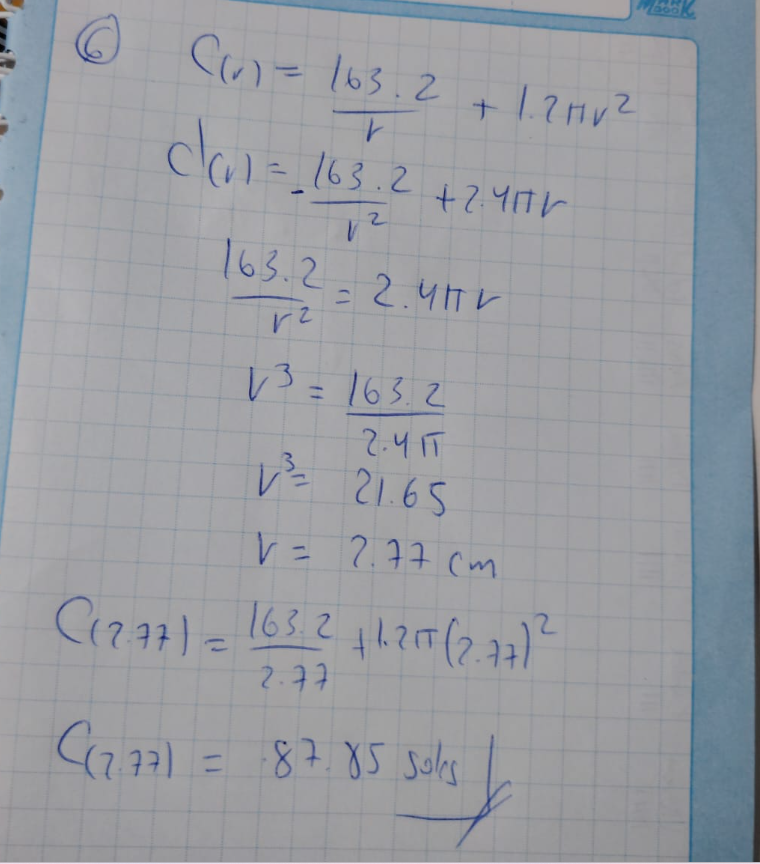 6 C(r) = 163.2/r + 1.2πr²
C'(r) = -163.2/r² + 2.4πr
163.2/r² = 2.4πr
r³ = 163.2/2.4π
r³ = 21.65
r = 2.77 cm
C(2.77) = 163.2/2.77 + 1.2π(2.77)²
C(2.77) = 87.85 soles